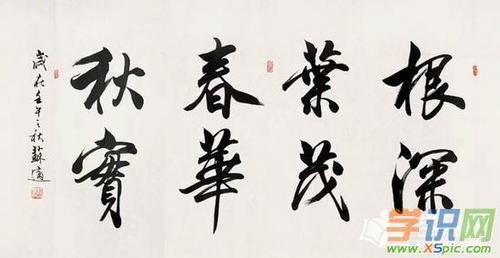 根深
葉茂
春華
秋實
歲在壬午之秋蘇適
学识网
www.XSpic.com